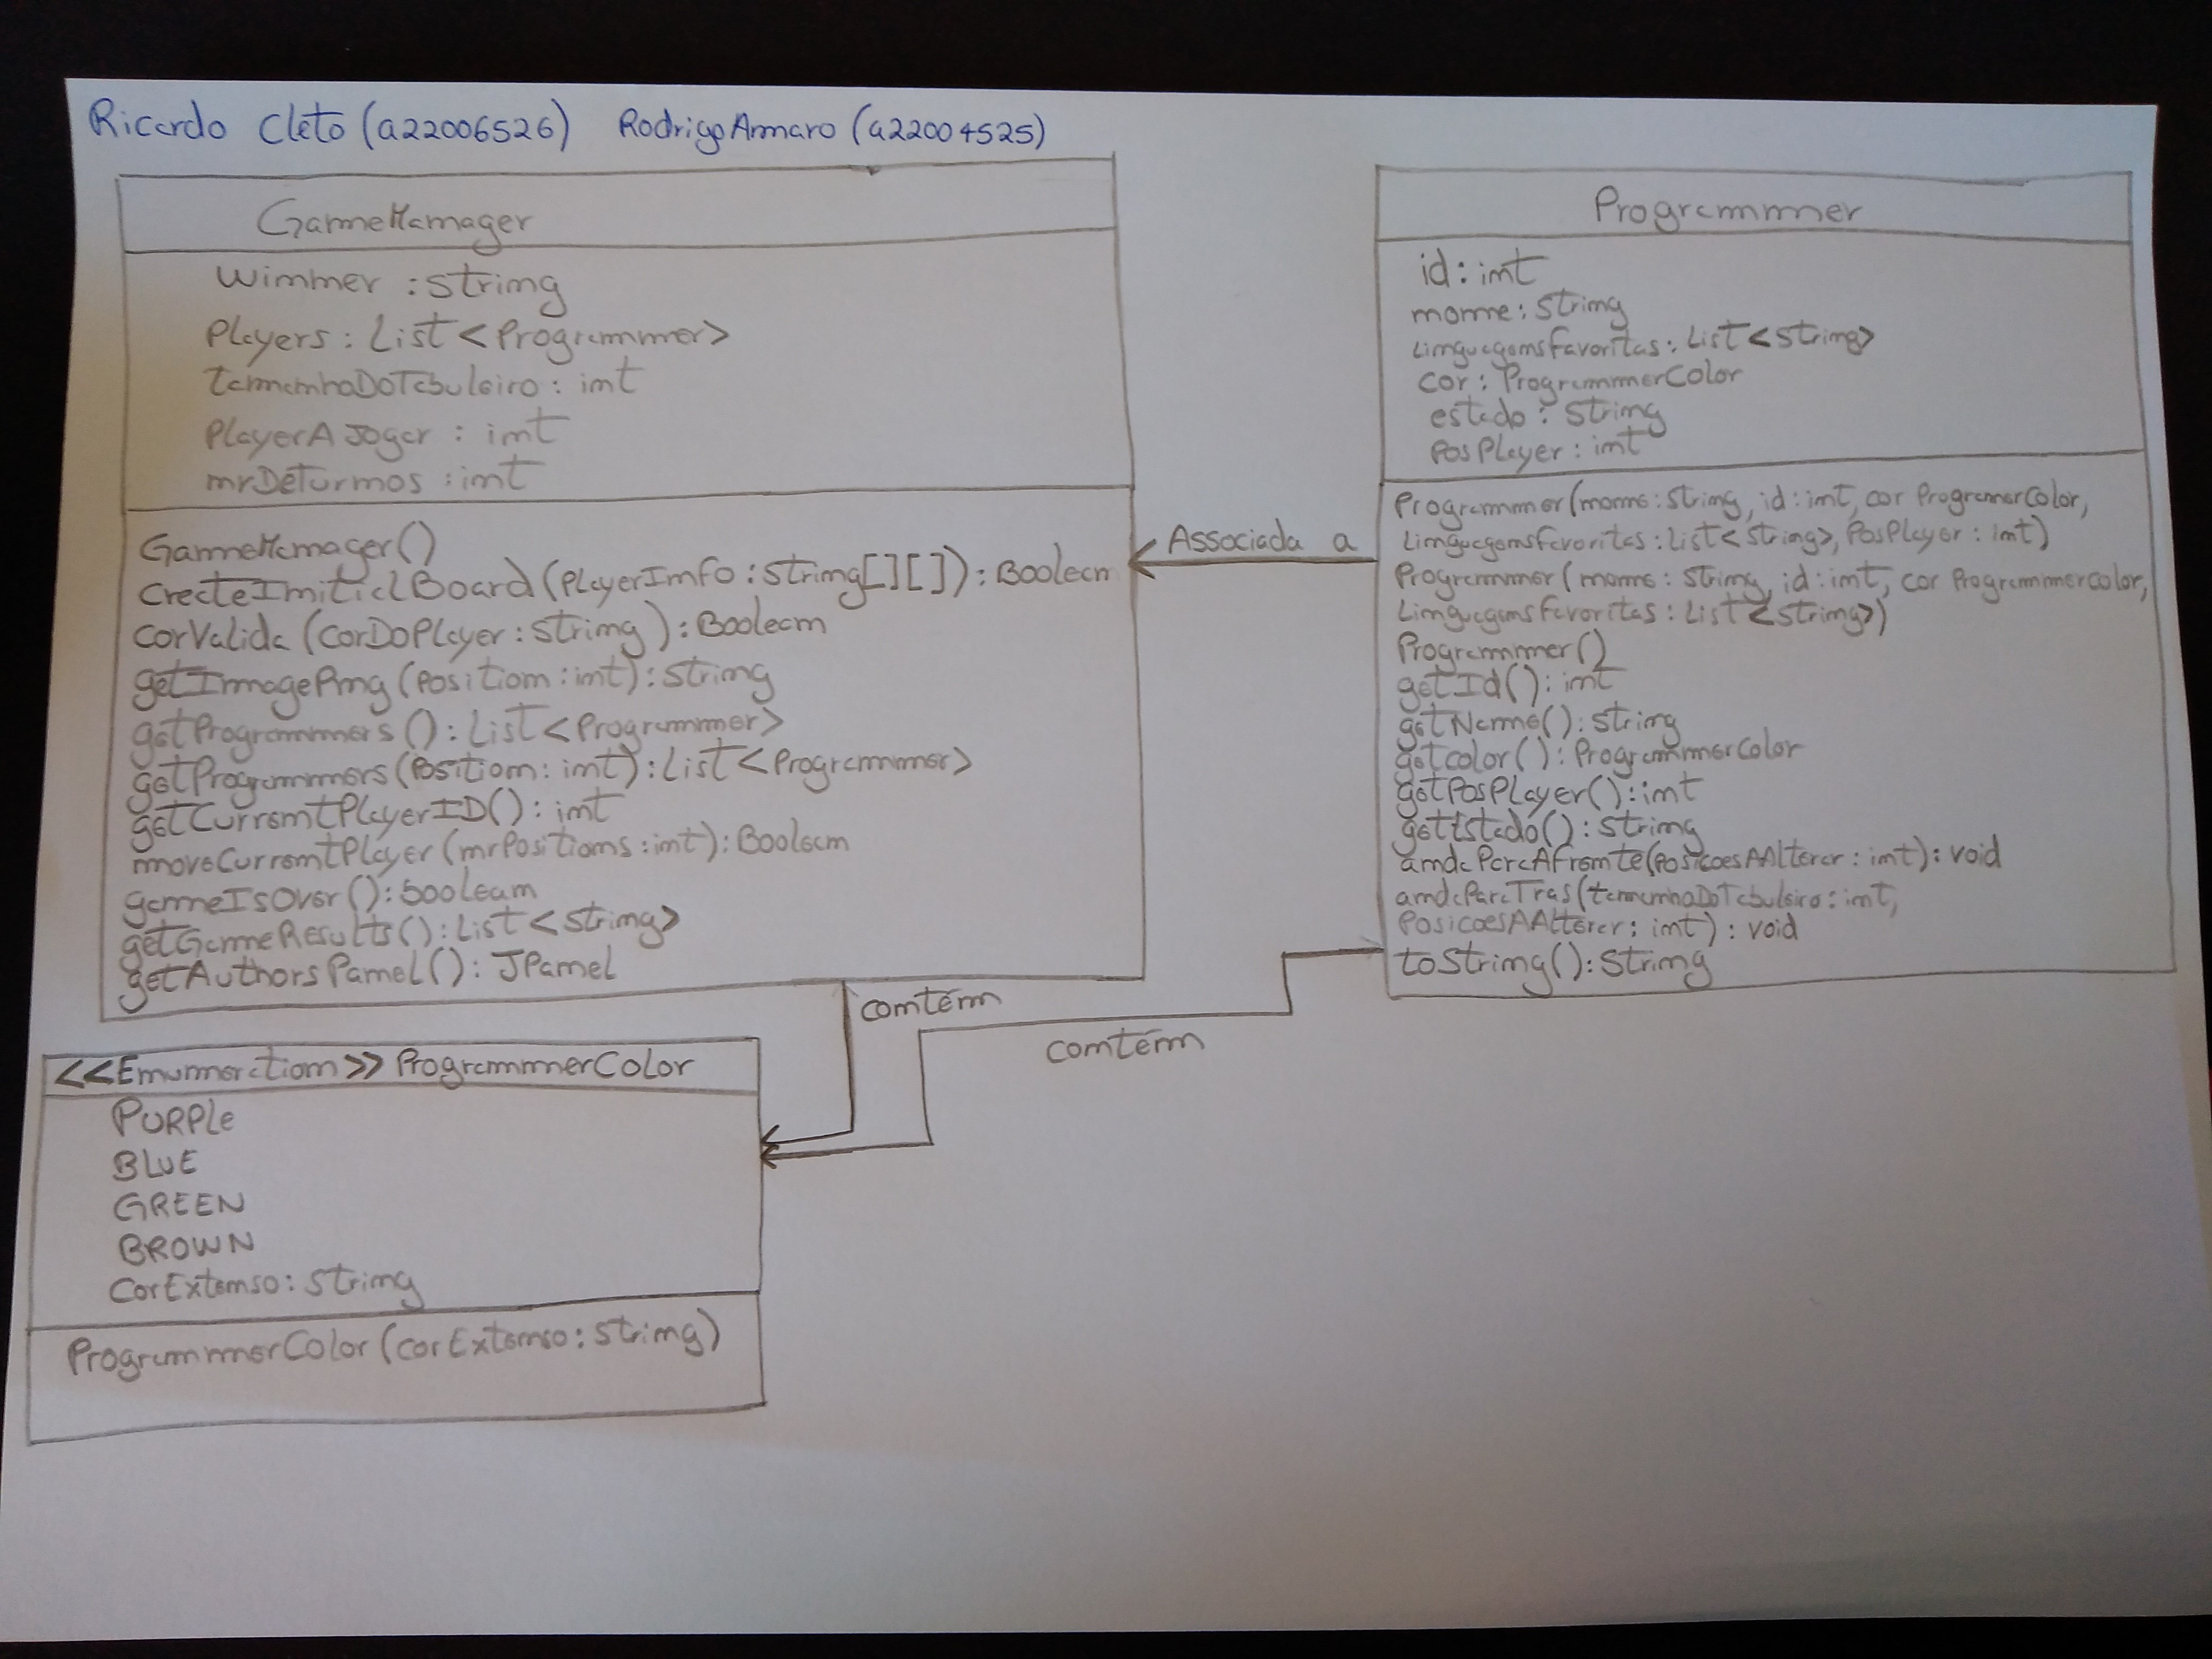 Ricardo Cleto (a22006526) Rodrigo Amaro (a22004525)
GameManager
winner : String
Players : List <Programmer>
tamanhoDoTabuleiro : int
PlayerAJogar : int
nrDeTurnos : int
GameManager()
createInitialBoard (PlayerInfo : String[][]) : Boolean
corValida (corDoPlayer : String) : Boolean
getImagePng (Position : int) : String
getProgrammers () : List <Programmer>
getProgrammers (Position : int) : List <Programmer>
getCurrentPlayerID() : int
moveCurrentPlayer (nrPositions : int) : Boolean
gameIsOver() : boolean
getGameResults() : List <String>
getAuthorsPanel() : JPanel
Associada a
Programmer
id : int
nome : String
LinguagensFavoritas : List <String>
cor : ProgrammerColor
estado : String
PosPlayer : int
Programmer (nome : String, id : int, cor ProgramerColor,
LinguagensFavoritas : List <String>, PosPlayer : int)
Programmer (nome : String, id : int, cor Programmercolor,
LinguagensFavoritas : List <String>)
Programmer ()
getId() : int
getName() : String
getcolor() : ProgrammerColor
getPosPlayer() : int
getEstado() : String
andaParaAFrente(PosicoesAAlterar : int) : void
andaParaTras (tamanhoDoTabuleiro : int,
PosicoesAAlterar : int) : void
toString() : String
contém
contém
<<Enumeration>> ProgrammerColor
PURPLE
BLUE
GREEN
BROWN
CorExtenso : String
ProgrammerColor (corExtenso : String)